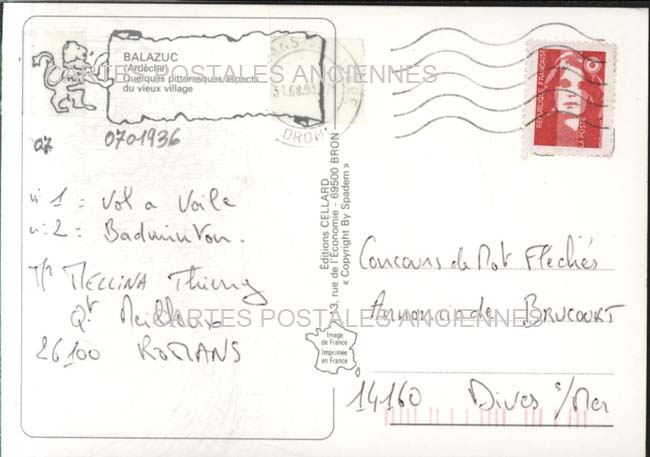 BALAZUC
(Ardèche)
Quelques pittoresques aspects
du vieux village
CARTES POSTALES ANCIENNES
DROME
07
0701936
n° 1 : Vol a Voile
n° 2 : Badminton.
MELLINA Thierry
Qt
26100 ROMANS
Éditions CELLARD
13, rue de l'Économie - 69500 BRON
« Copyright By Spadem »
Image
de France
Imprimée
en France
REPUBLIQUE FRANÇAISE
LA POSTE
Concours de Mot Fléchés
Annonciade BRUCOURT
CARTES POSTALES ANCIENNES
14160 Dives s/Mer